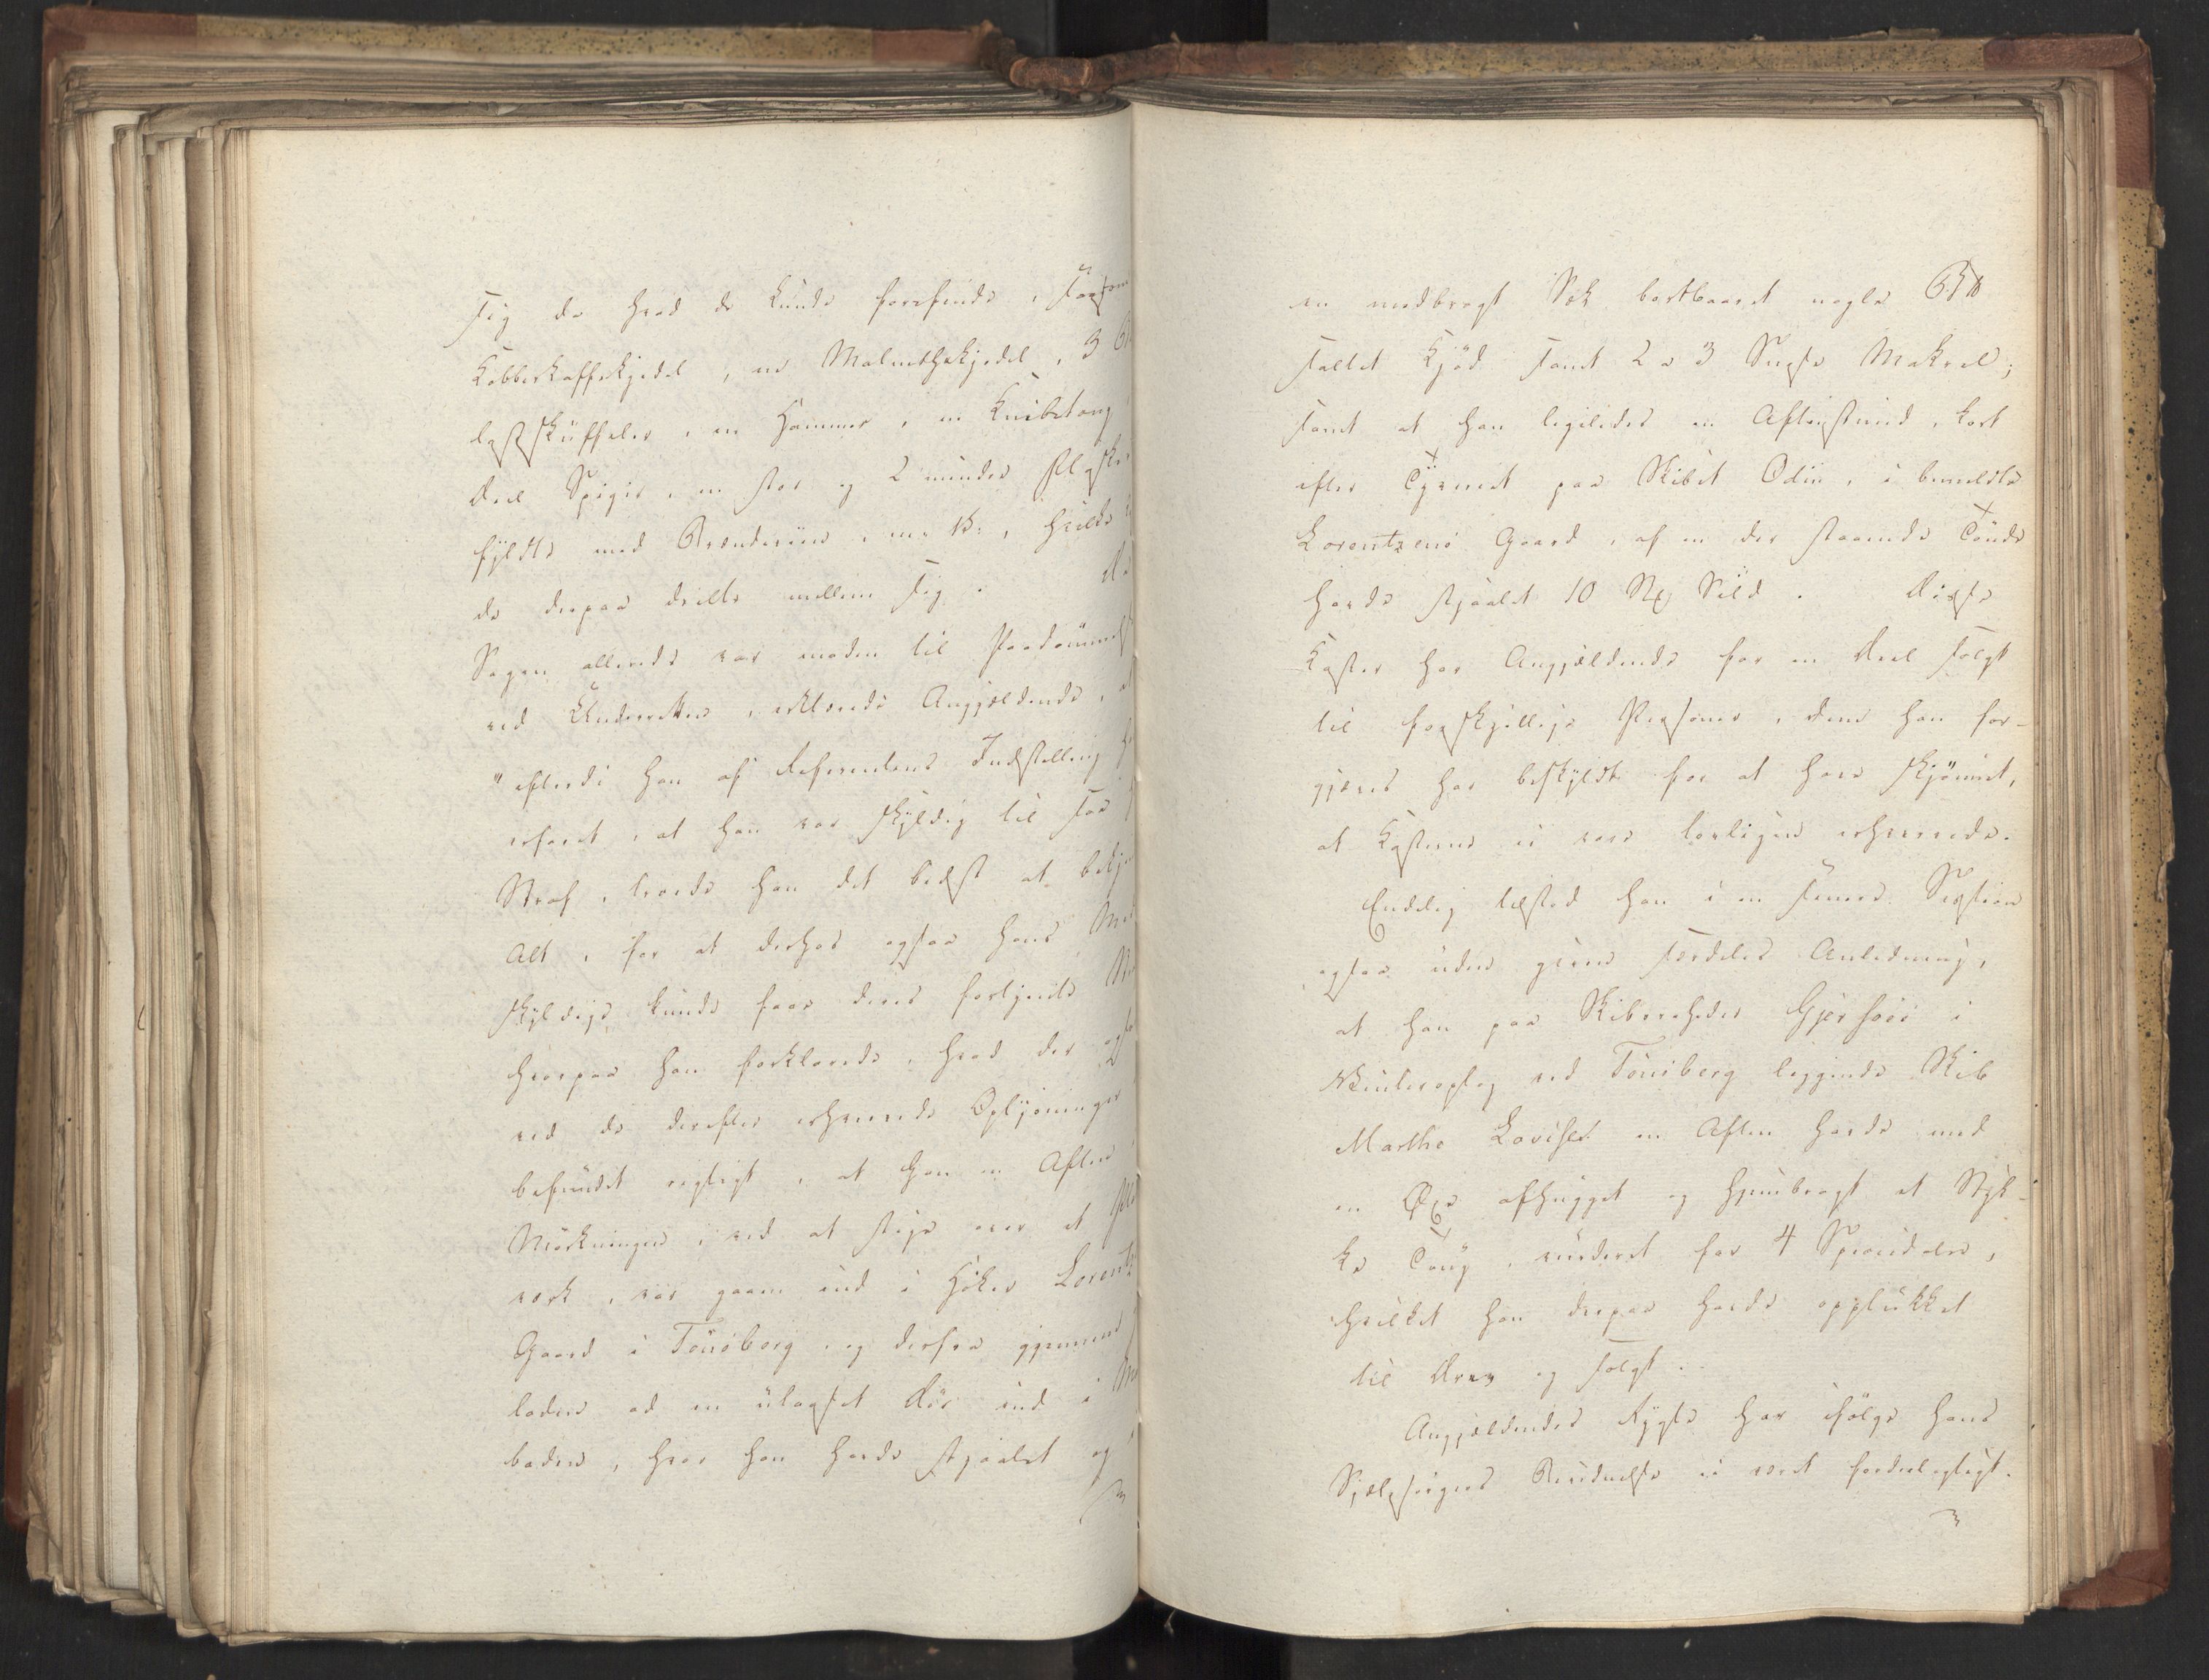 sig da hvad de kunde forefinde, saasom
Kobberkaffekjedel, en Malmthekjedel, 3
destskuffeler, en Hammer, en Knibetang
deel Spiger, en stor og 2 mindre Flasker
fyldte med Brændeviin, m. v., hvilket
de derpaa deelte mellem sig. Da
Sagen allerede var moden til Paadømmelse
ved Underretten, erklærede Angjældende, at
"efterdi han af Referentens Indstilling
erfaret, at han var skyldig til saa
Straf, troede han det bedst at bekjende
Alt, for at derhos ogsaa hans Med
skyldige kunde faae deres fortjente
hvorpaa han forklarede, hvad der ogsaa
ved de derefter erhvervede Oplysninger
befundet rigtigt, at han en Aften
Mørkningen, ved at stige over et
værk, var gaaen ind i Høker Lorentz
Gaard i Tønsberg, og derfra gjennem
laden ad en ulaaset Dør ind i
boden, hvor han havde stjaalet og i
en medbragt Sæk bortbaaret nogle
saltet Kjød samt 2 a 3 Snese Makrel;
samt at han ligeledes en Aftenstund, kort
efter Tyveriet paa Skibet Odin, i bemeldte
Lorentzens Gaard, af en der staaende Tønde
havde stjaalet 10 Stk Sild. Disse
Koster har Angjældende for en Deel solgt
til forskjellige Personer, dem han for-
gjæves har beskyldt for at have skjønnet,
at Kosterne ei vare lovligen erhvervede.
Endelig tilstod han i en senere Session
ogsaa uden given særdeles Anledning,
at han paa Skibsrheder Gjersøes i
Vinteroplag ved Tönsberg liggende Skib
Marthe Lovise en Aften havde med
en Øxe afhugget og hjembragt et Styk-
ke Toug, vurderet for 4 Speciedaler,
hvilket han derpaa havde opplukket
til Drev og solgt.
Angjældendes Rygte har ifølge hans
Sjælesørgers Vidnelse ei været fordeelagtigt.